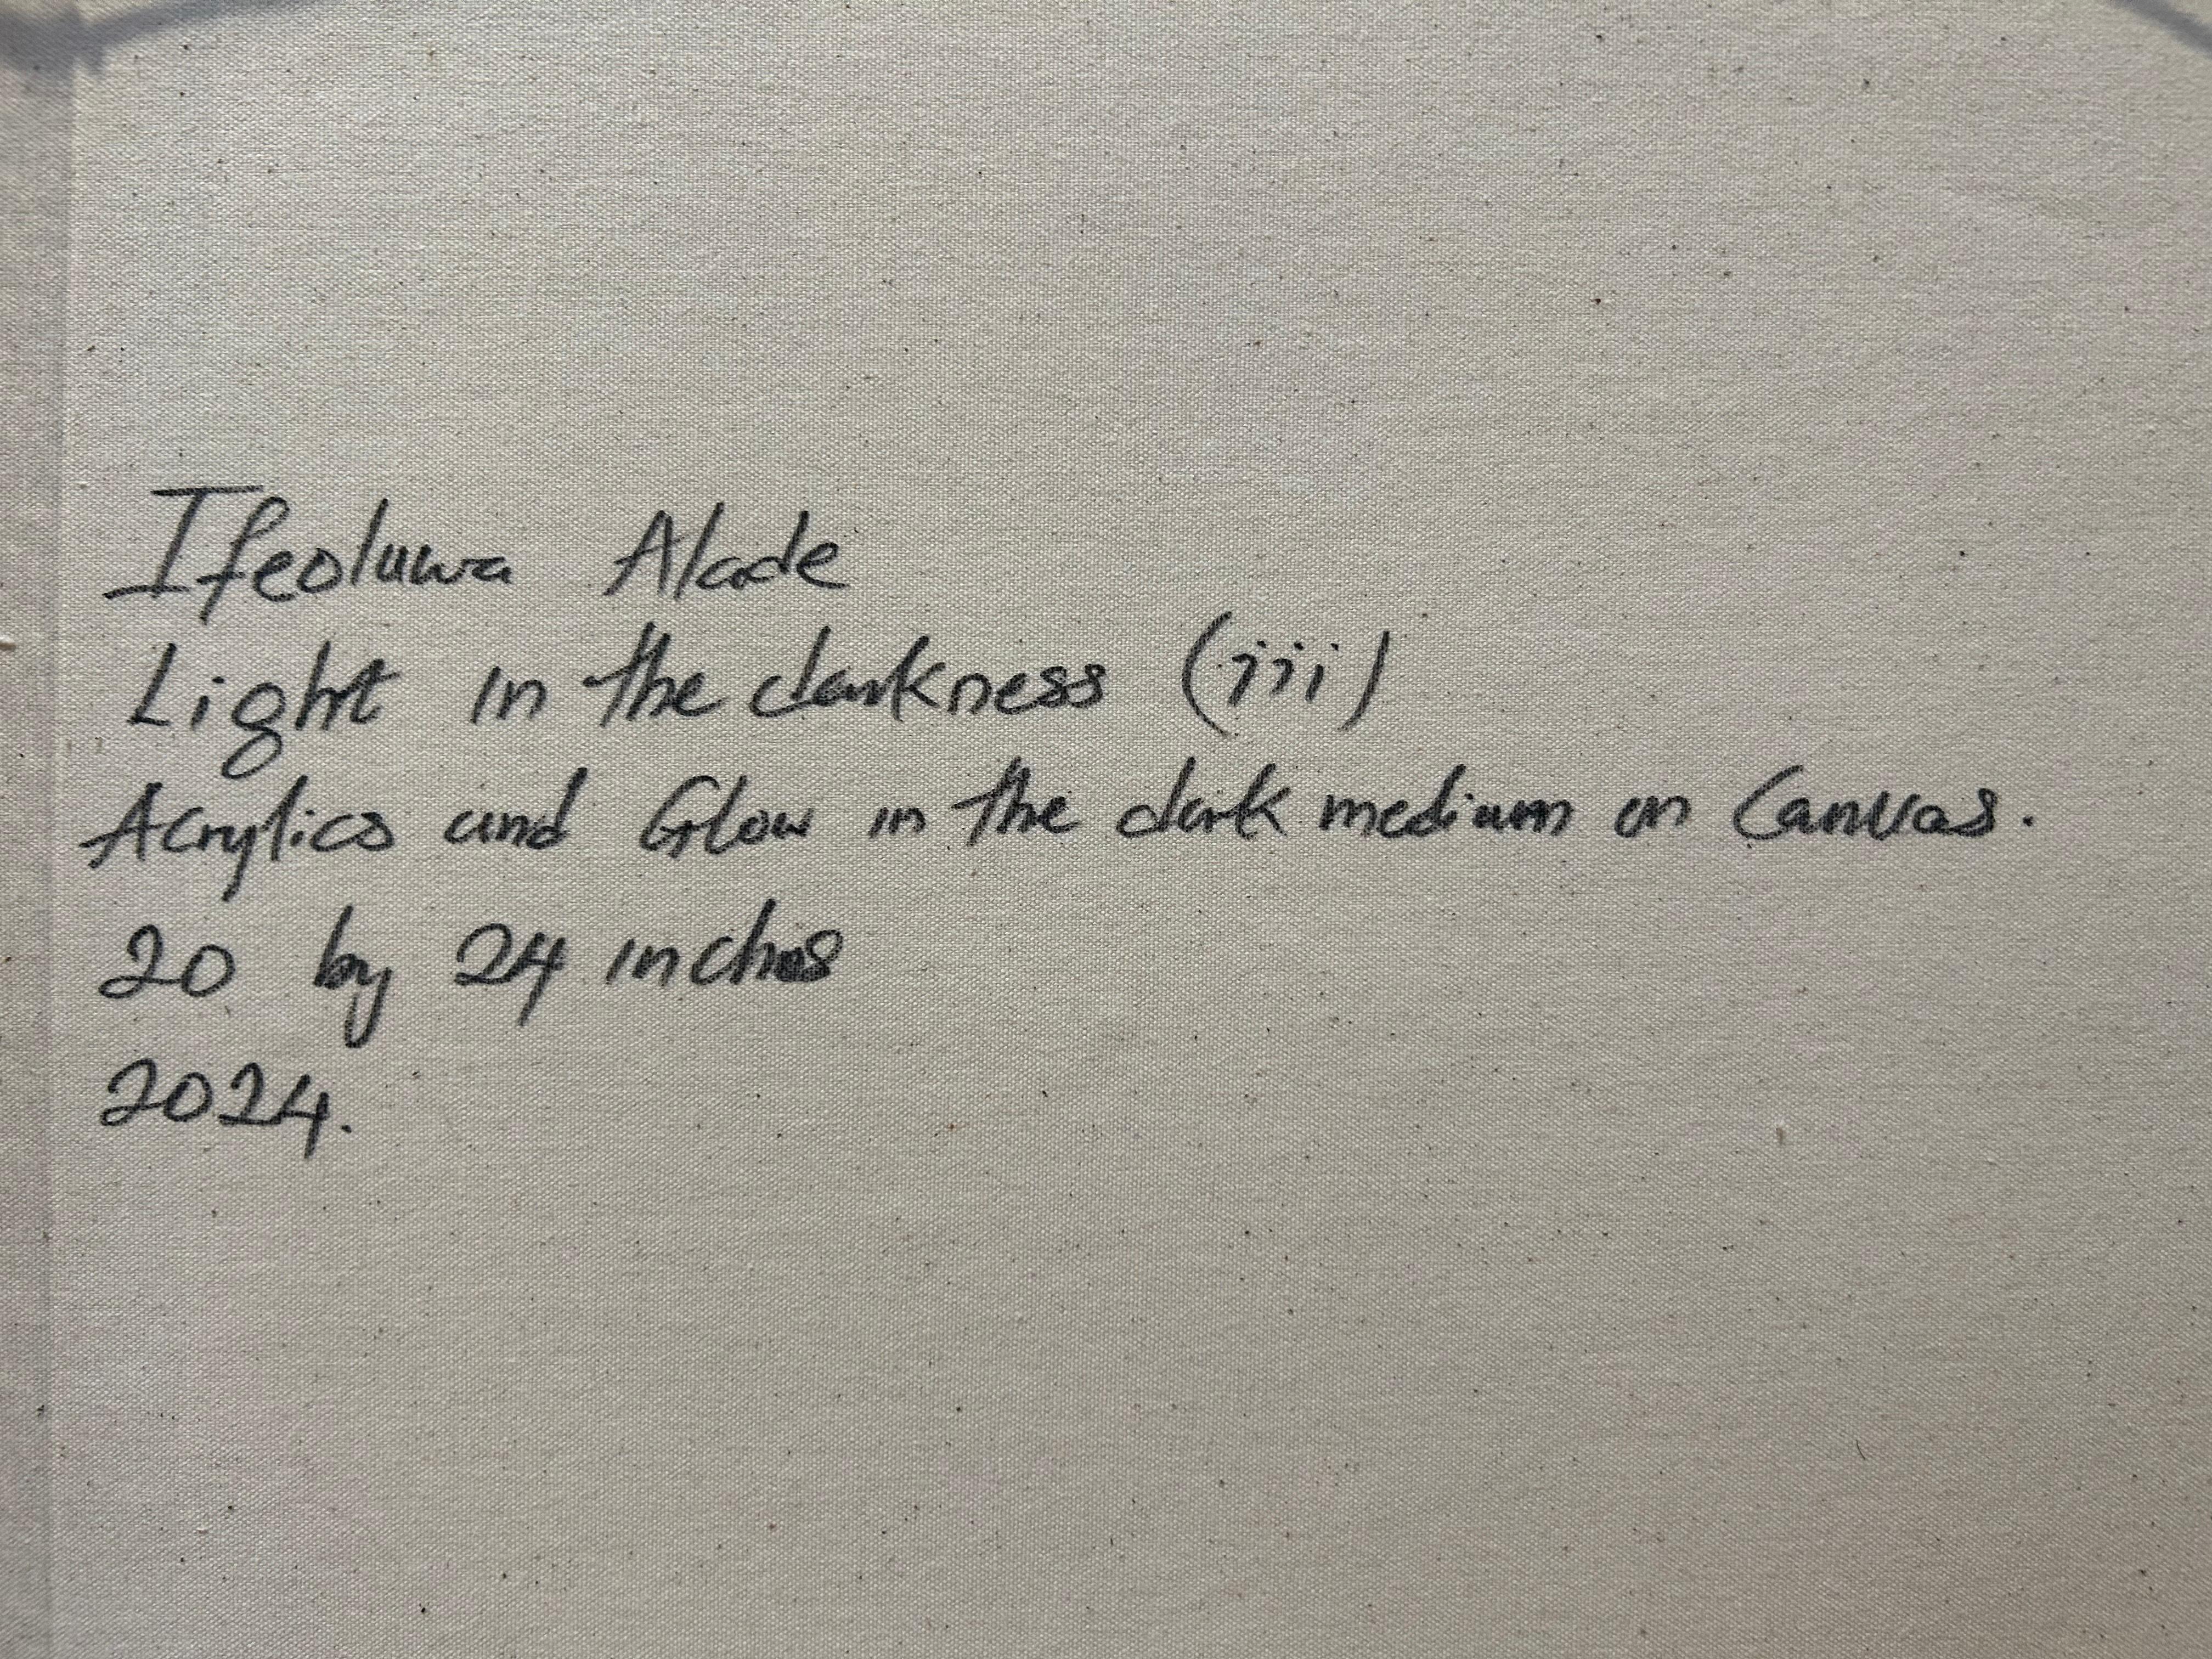 Ifeoluwa Alade
Light in the darkness (iii)
Acrylics and Glow in the dark medium on Canvas.
20 by 24 inches
2024.